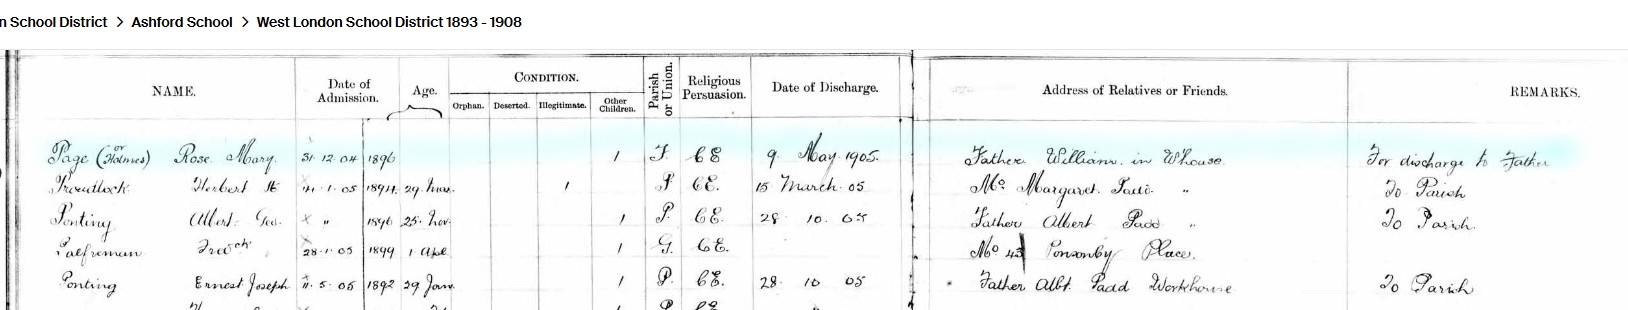 n School District > Ashford School > West London School District 1893 - 1908
NAME. Date of Admission. Age. CONDITION. Parish or Union. Religious Persuasion. Date of Discharge. Address of Relatives or Friends. REMARKS.
Orphan. Deserted. Illegitimate. Other Children.
Page (or Holmes) Rose Mary. 31.12.04 1896 1 F. CE 9 May 1905. Father William in Whouse. For discharge to Father
Herbert 1.05 1894 29 1 P CE. 15 March 05 Mo Margaret Padd. " To Parish
Ponting Albert Geo. " 1896 25 Nov. 1 P. CE. 28 10 05 Father Albert Padd " To Parish.
Palfreman Fredck 28.1.05 1899 1 Apl 1 G. CE. Mo 43 Ponsonby Place.
Ponting Ernest Joseph 11.5.05 1892 29 Jan. 1 P. CE. 28 10 05 Father Albt Padd Workhouse To Parish